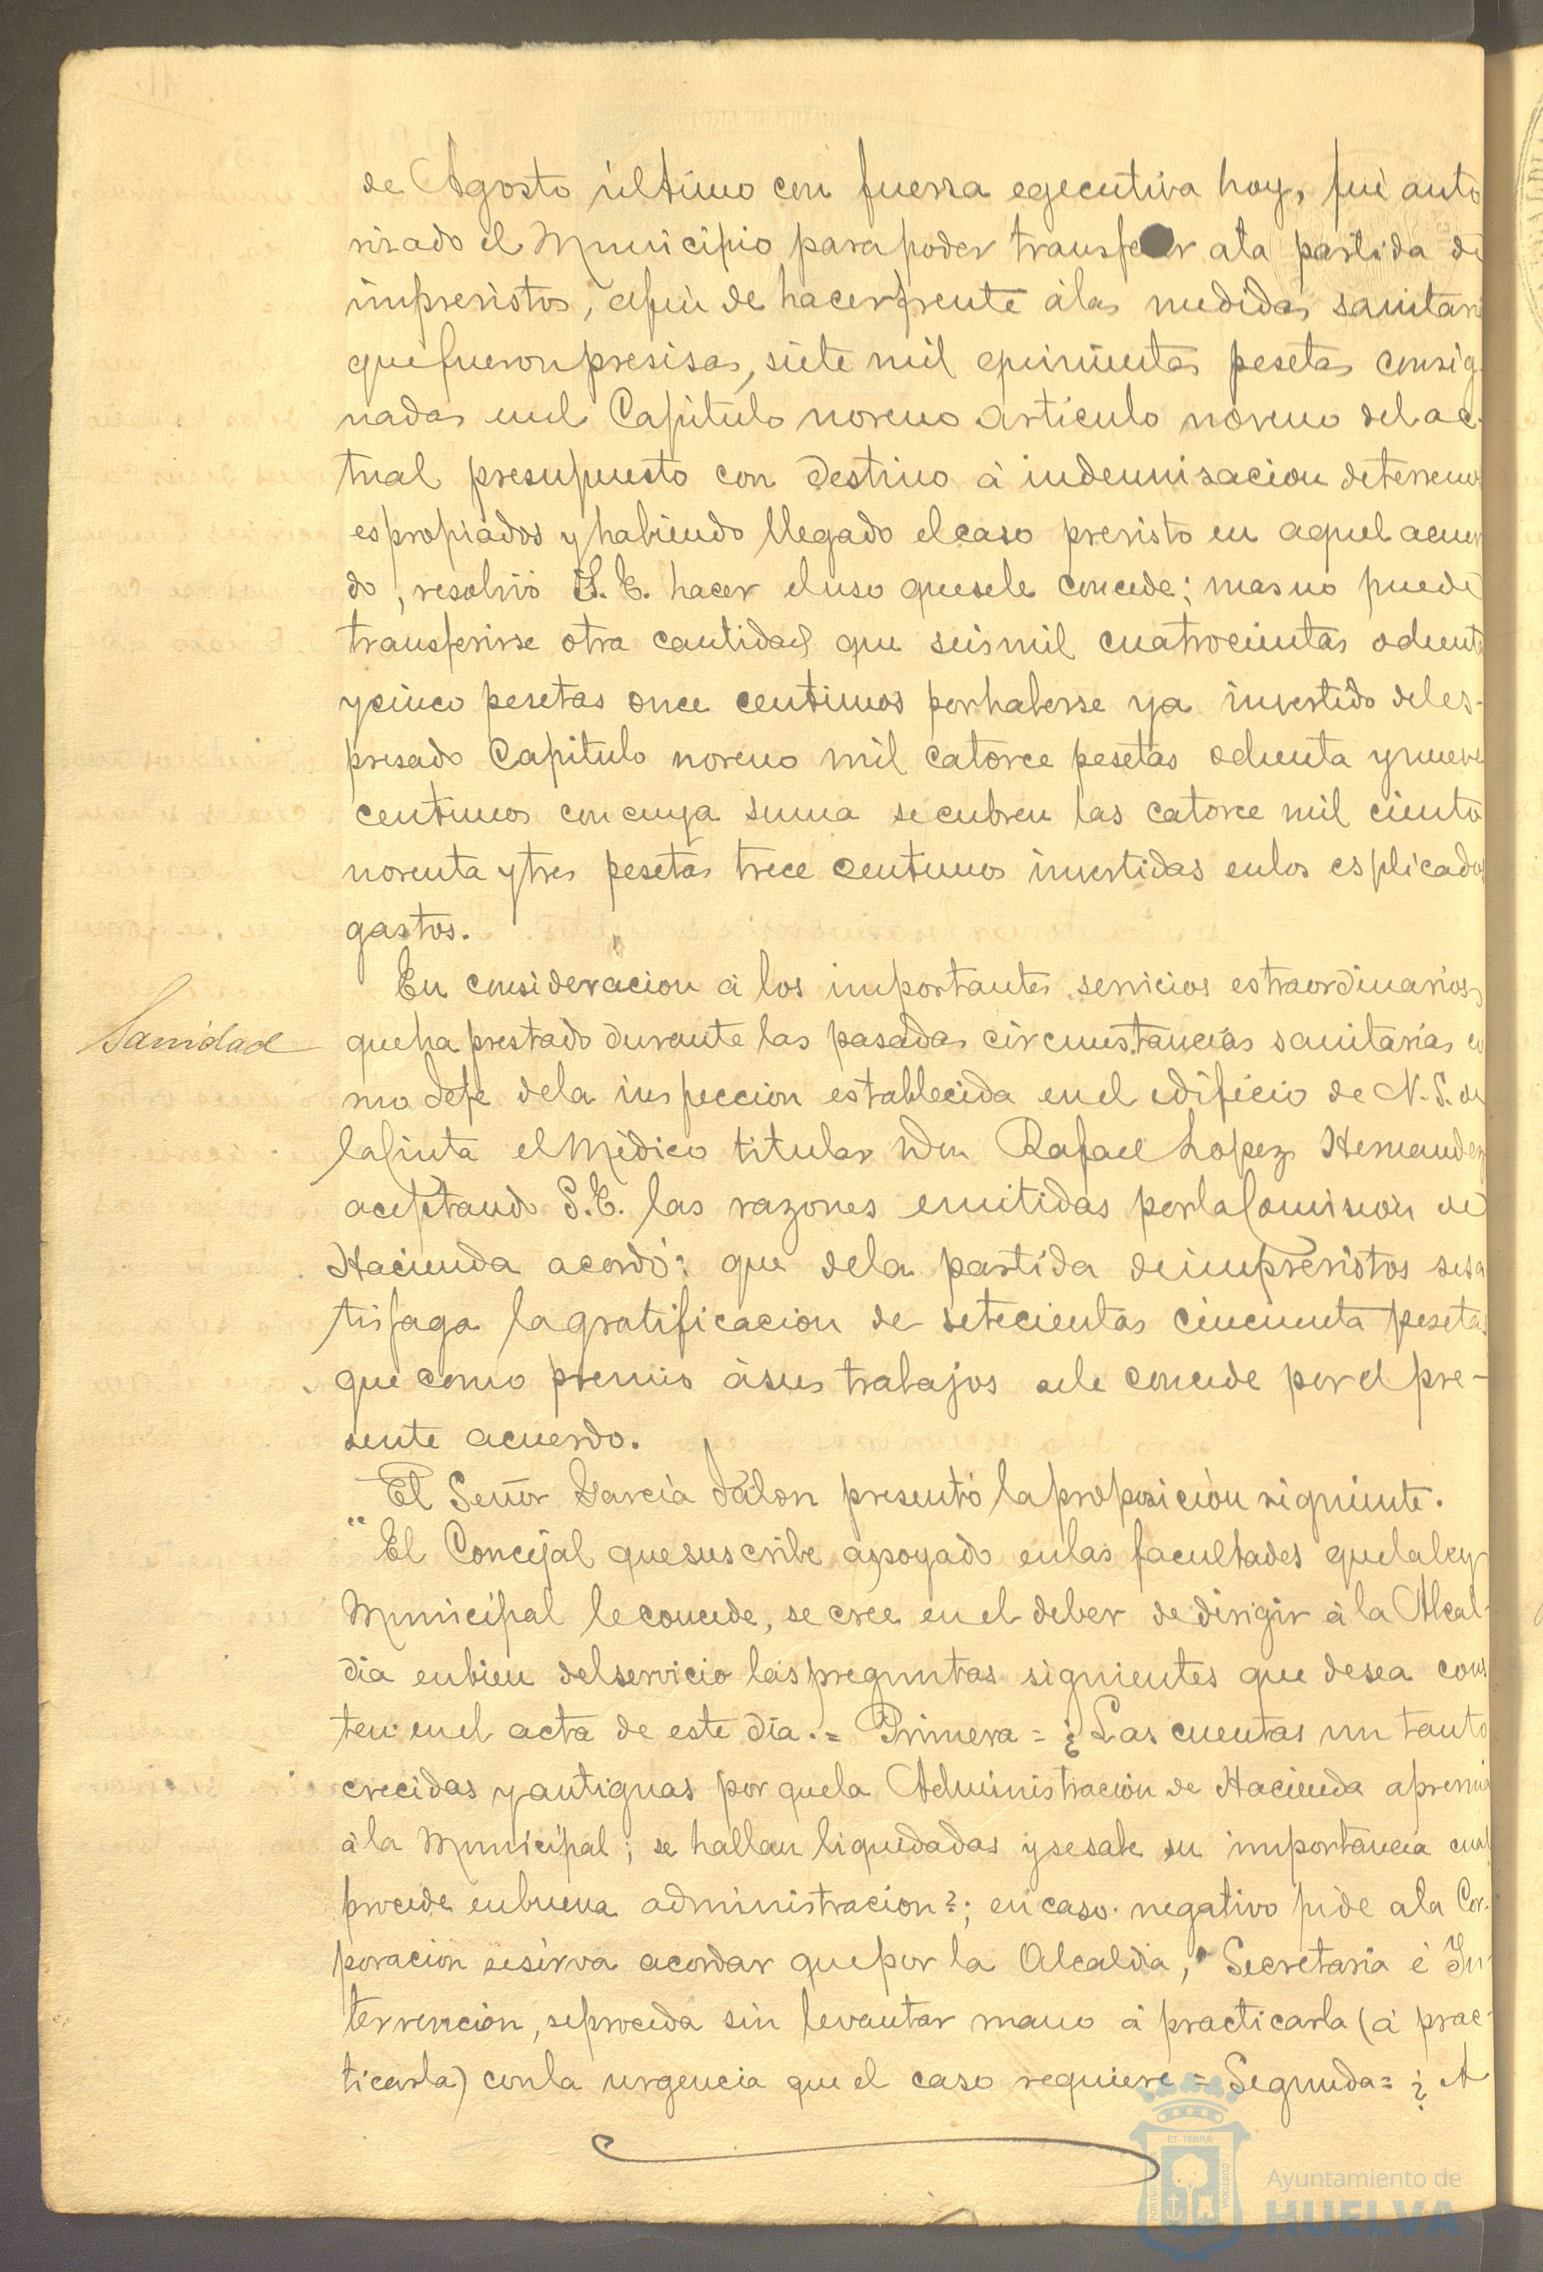 de Agosto último con fuersa egecutiva hoy, fué auto
risado el Municipio para poder transferir ala partida de
imprevistos, afin de hacer frente álas medidas sanitari
que fueron presisas, siete mil quinientas pesetas consig
nadas enel Capitulo noveno articulo noveno del ac-
tual presupuesto con destino á indemnisacion de terrenos
espropiados y habiendo llegado el caso previsto en aquel acuer
do, resolvió S. E. hacer el uso que sele concede; mas no puede
transferirse otra cantidad que seis mil cuatrocientas ochenta
y cinco pesetas once centimos por haberse ya invertido del es-
presado Capitulo noveno mil catorce pesetas ochenta y nueve
centimos con cuya suma se cubren las catorce mil ciento
noventa y tres pesetas trece centimos invertidas enlos esplicados
gastos.
En consideracion á los importantes servicios estraordinarios
Sanidad
que ha prestado durante las pasadas circunstancias sanitarias co
mo Jefe dela inspeccion establecida en el edificio de N. S. de
la Cinta el Médico titular Don Rafael Lopez Hernandez
aceptando S. E. las razones emitidas por la Comision de
Hacienda acordó: que dela partida de imprevistos se sa
tisfaga la gratificacion de setecientas cincuenta pesetas
que como premio ásus trabajos sele concede por el pre-
sente acuerdo.
El Señor Garcia Jalon presentó la proposición siguiente.
"El Concejal que suscribe apoyado enlas facultades que la ley
Municipal le concede, se cree en el deber de dirigir á la Alcal-
dia en bien del servicio las preguntas siguientes que desea cons
ten en el acta de este dia.= Primera = ¿Las cuentas un tanto
crecidas y antiguas por que la Administración de Hacienda apremia
á la Municipal; se hallan liquidadas y se sabe su importancia cual
procede en buena administracion?; en caso negativo pide ala Cor-
poracion se sirva acordar que por la Alcaldia, Secretaria é In
tervencion, se proceda sin levantar mano á practicarla (á prac-
ticarla) con la urgencia que el caso requiere = Segunda= ¿A
ET TERRÆ
CUSTODIA
Ayuntamiento de
HUELVA